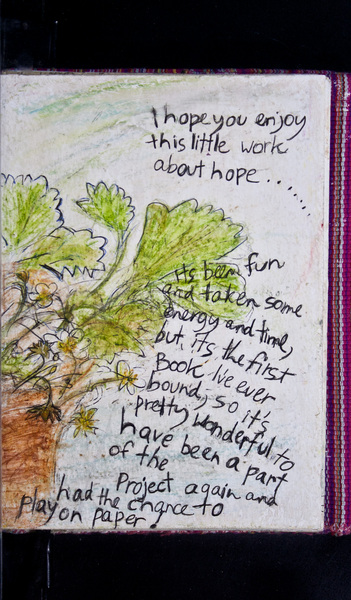 I hope you enjoy
this little work
about hope.........
its been fun
and taken some
energy and time,
but its the first
Book I've ever
bound, so it's
pretty wonderful to
have been a part
of the
Project again and
had the chance to
play on paper!